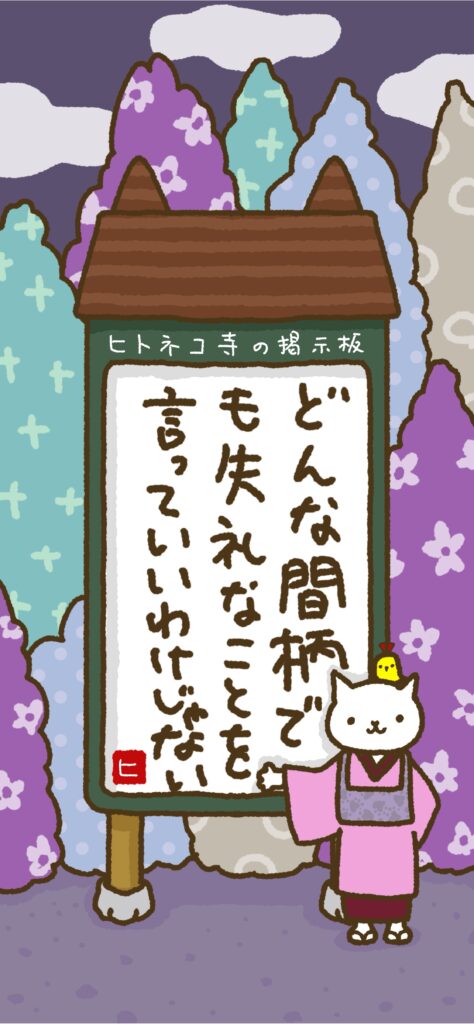 ヒトネコ寺の掲示板
どんな間柄で
も失礼なことを
言っていいわけじゃない
ヒ